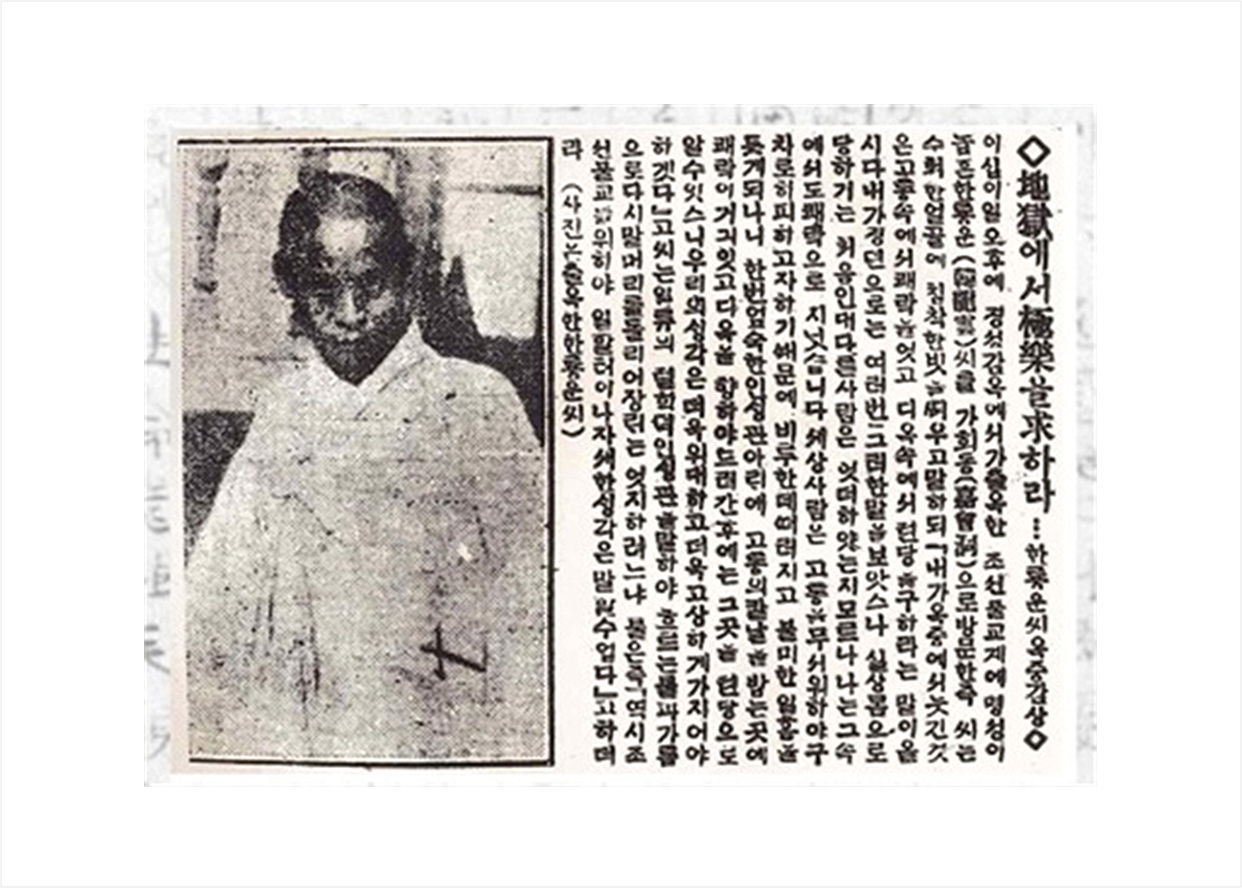 ◇地獄에서極樂을求하라…한룡운씨옥중감상◇
이십이일오후에 경성감옥에서가출옥한 조선불교계에명성이
놉흔한룡운(韓龍雲)씨를 가회동(嘉會洞)으로방문한즉 씨는
수척한얼골에 침착한빗을띄우고말하되「내가옥중에서늣긴것
은고통속에서쾌락을엇고 디옥속에서텬당을구하라는 말이올
시다내가경뎐으로는 여러번그러한말을보앗스나 실상몸으로
당하기는 처음인대다른사람은 엇더하얏는지모르나나는그속
에서도쾌락으로 지냇슴니다세상사람은 고통을무서워하야구
차로히피하고자하기때문에 비루한데떠러지고 불미한일홈을
듯게되나니 한번엄숙한인생관아리에 고통의칼날을밟는곳에
쾌락이거긔잇고디옥을 향하야드러간후에는 그곳을 텬당으로
알수잇스니우리의생각은더욱위대하고더욱고상하게가지어야
하겟다」고씨는일류의 텰학뎍인생관을말하야 흐르는물과가틈
으로다시말머리를돌리어장래는 엇지하려느냐 물은즉「역시조
선불교를위하야 일할터이나자세한생각은 말할수업다」고하더
라 (사진은출옥한한룡운씨)